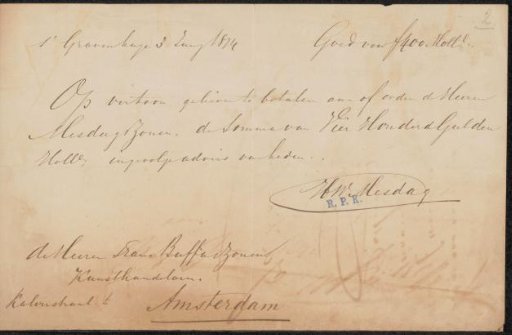 2
s' Gravenhage 3 Juny 1874 Goed voor f400 Holl.
Op vertoon gelieve te betalen aan of order de Heeren
Mesdag & Zonen de Somma van Vier Honderd Gulden
Holl. ingevolge advis van heden.
HW Mesdag
R.P.K.
de Heeren Frans Buffa & Zonen
Kunsthandelaren
Kalverstraat
Amsterdam